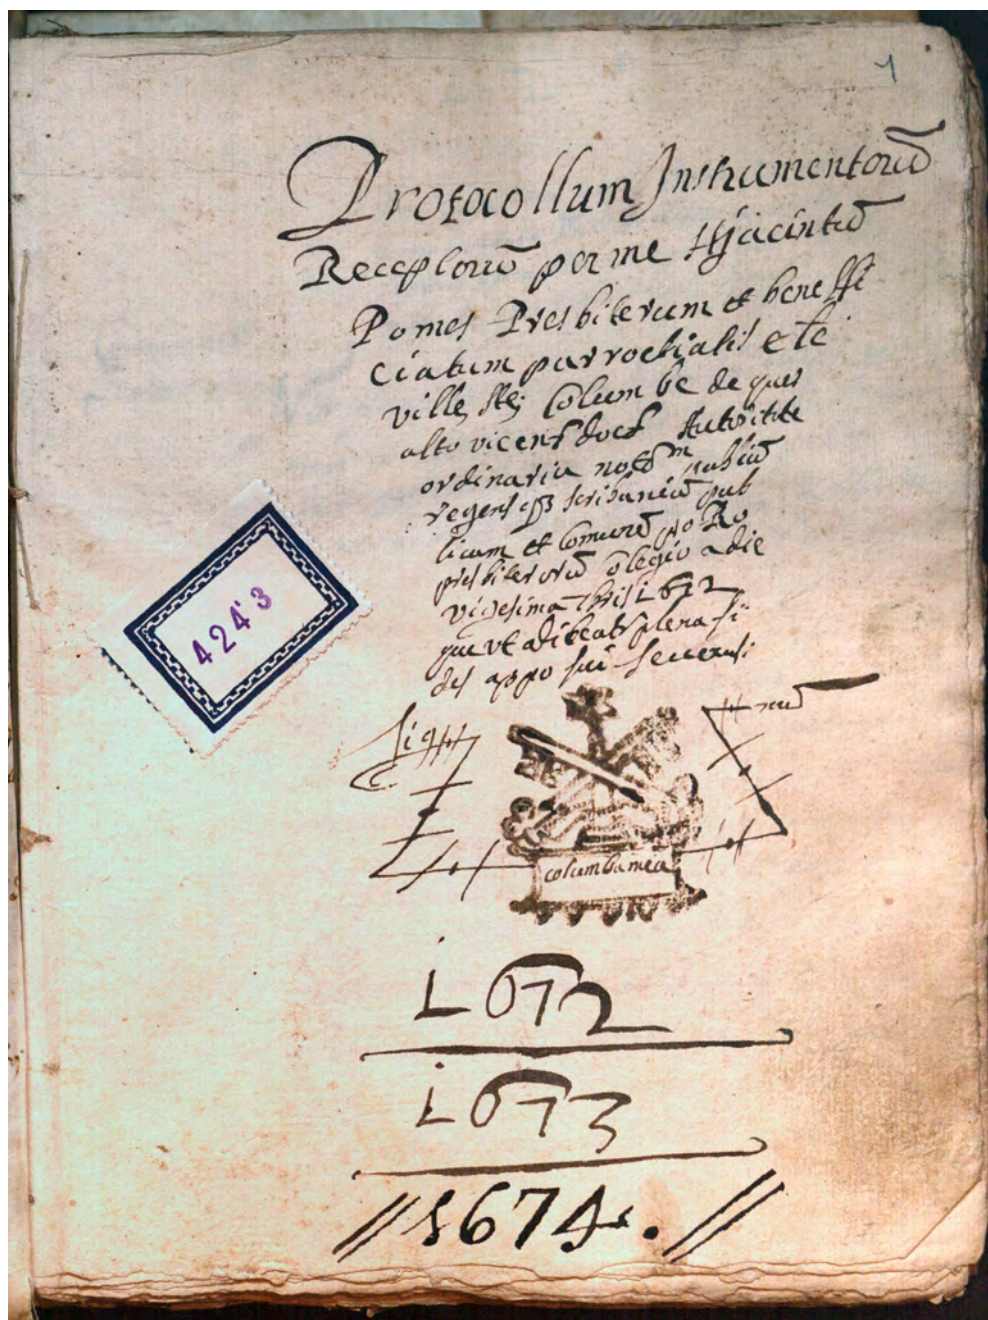 1
Protocollum Instrumentorũ
Receptorũ per me Hjacintũ
Pomes Presbiterum et beneffi
ciatum parrochialis ecle
ville Ste Columbe de quer
alto vicens docs Autoitate
ordinaria notũm publicũ
regens scribaniã pub
licam et comunẽ pro Ro
presbiterorũ colegio a die
vigesima 1672
que ut adibeatr plena fi
des appo sui Seccensi
Sig nũ
columba mea
4243
1672
1673
//1674.//